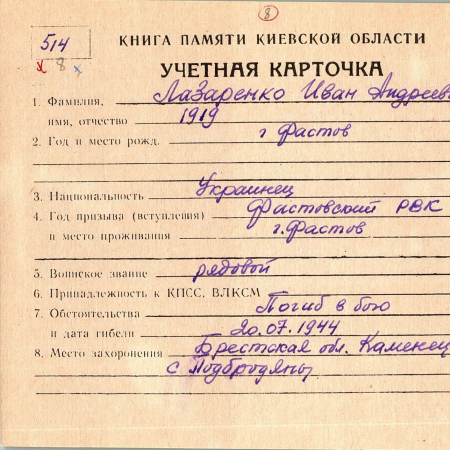 8
514
8
КНИГА ПАМЯТИ КИЕВСКОЙ ОБЛАСТИ
УЧЕТНАЯ КАРТОЧКА
1. Фамилия, Лазаренко Иван Андреев
имя, отчество 1919
2. Год и место рожд. г Фастов
3. Национальность Украинец
4. Год призыва (вступления) Фастовский РВК
и место проживания г. Фастов
5. Воинское звание рядовой
6. Принадлежность к КПСС, ВЛКСМ
7. Обстоятельства Погиб в бою
и дата гибели 20.07.1944
8. Место захоронения Брестская обл. Каменец
с Подбродяны